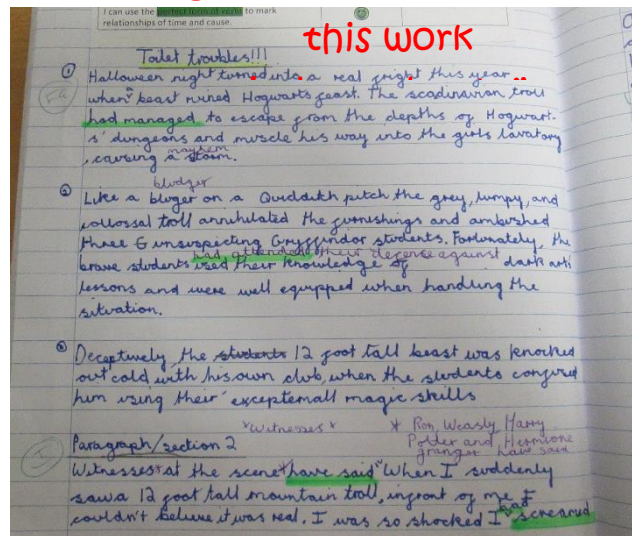 I can use the perfect form of verbs to mark
relationships of time and cause.
this work
Toilet troubles!!!
① Halloween night turned into a real fright this year
when a beast ruined Hogwarts feast. The scadinavian troll
had managed to escape from the depths of Hogwart-
s' dungeons and muscle his way into the girls lavatory
, causing a storm.
mayhem
bludger
② Like a bluger on a Quidditch pitch the grey, lumpy, and
collossal troll annihilated the furnishings and ambushed
three G unsuspecting Gryffindor students. Fortunately, the
had attended their defense against
brave students used their knowledge of dark arts
lessons and were well equipped when handling the
situation.
③ Deceptively the students 12 foot tall beast was knocked
out cold with his own club, when the students confused
him using their exceptemall magic skills
*witnesses* * Ron, Weasly Harry
Paragraph/section 2 Potter and Hermione
granger have said
Witnesses* at the scene* have said "When I suddenly
saw a 12 foot tall mountain troll, infront of me I
couldn't believe it was real. I was so shocked I had screamed